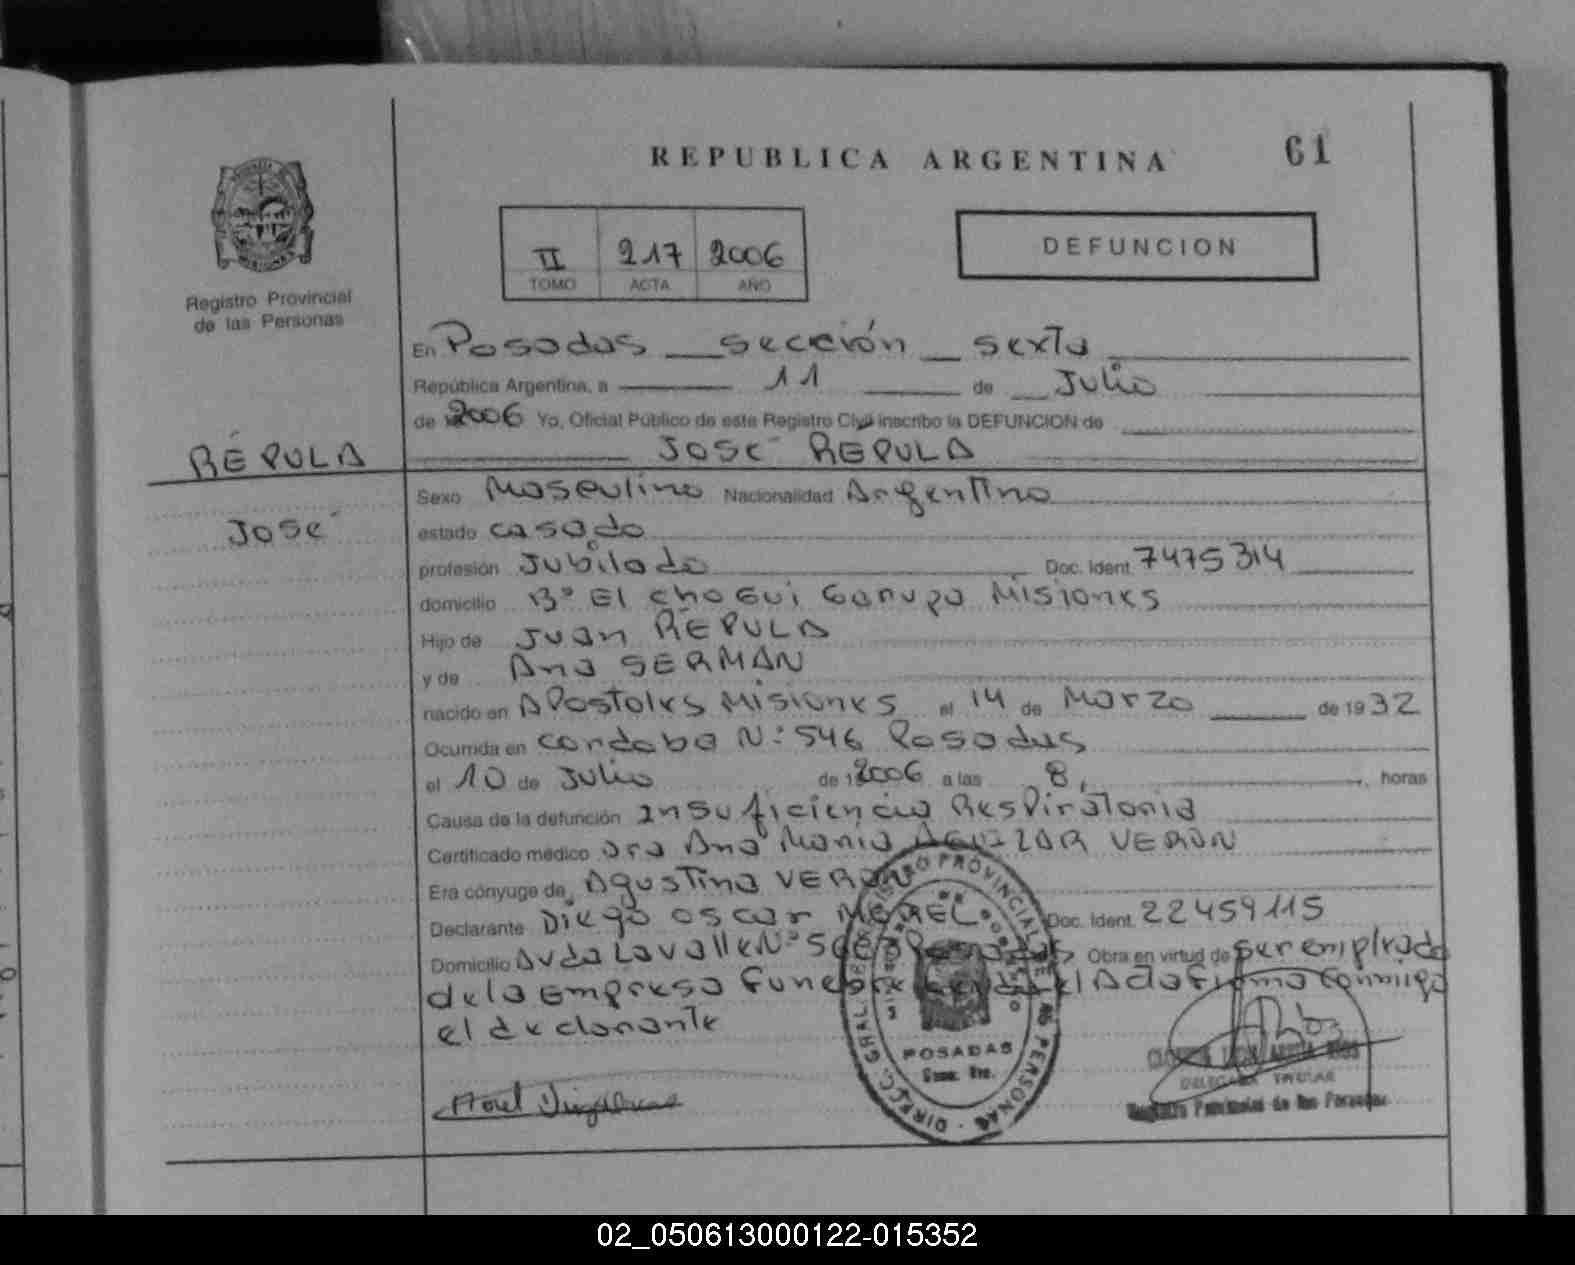 REPUBLICA ARGENTINA
61
II 217 2006
TOMO ACTA AÑO
DEFUNCION
Registro Provincial
de las Personas
En Posadas sección sexta
República Argentina, a 11 de Julio
de 2006 Yo, Oficial Público de este Registro Civil inscribo la DEFUNCION de
JOSÉ REPULA
RÉPULA
JOSÉ
Sexo Masculino Nacionalidad Argentino
estado casado
profesión Jubilado Doc. Ident. 7475314
domicilio B° El chogui Garupa Misiones
Hijo de Juan RÉPULA
y de Ana SERMAN
nacido en Apostoles Misiones el 14 de Marzo de 1932
Ocurrida en cordoba N: 546 Posadas
el 10 de Julio de 2006 a las 8, horas
Causa de la defunción Insuficiencia Respiratoria
Certificado médico Dra Ana Maria VERON
Era cónyuge de Agustina VERON
Declarante Diego oscar MOREL Doc. Ident. 22459115
Domicilio Avda Lavalle N° Obra en virtud de ser emplrado
de la Empresa Funebre el Acta Firma conmigo
el declarante
DIREC. GRAL. REGISTRO PROVINCIAL DE LAS PERSONAS
POSADAS
DELEGADA TITULAR
Registro Provincial de las Personas
02_050613000122-015352